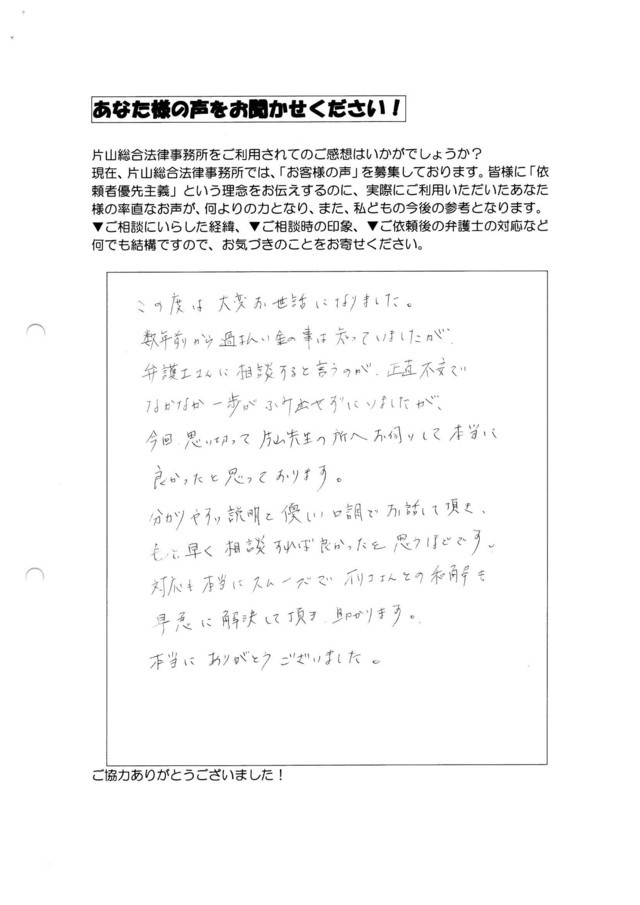 あなた様の声をお聞かせください！
片山総合法律事務所をご利用されてのご感想はいかがでしょうか？
現在、片山総合法律事務所では、「お客様の声」を募集しております。皆様に「依
頼者優先主義」という理念をお伝えするのに、実際にご利用いただいたあなた
様の率直なお声が、何よりの力となり、また、私どもの今後の参考となります。
▼ご相談にいらした経緯、▼ご相談時の印象、▼ご依頼後の弁護士の対応など
何でも結構ですので、お気づきのことをお寄せください。
この度は大変お世話になりました。
数年前から過払い金の事は知っていましたが、
弁護士さんに相談すると言うのが、正直不安で
なかなか一歩がふみ出せずにいましたが、
今回、思い切って片山先生の所へお伺いして本当に
良かったと思っております。
分かりやすい説明と優しい口調でお話して頂き、
もっと早く相談すれば良かったと思うほどです。
対応も本当にスムーズで さんとの和解も
早急に解決して頂き、助かります。
本当にありがとうございました。
ご協力ありがとうございました！